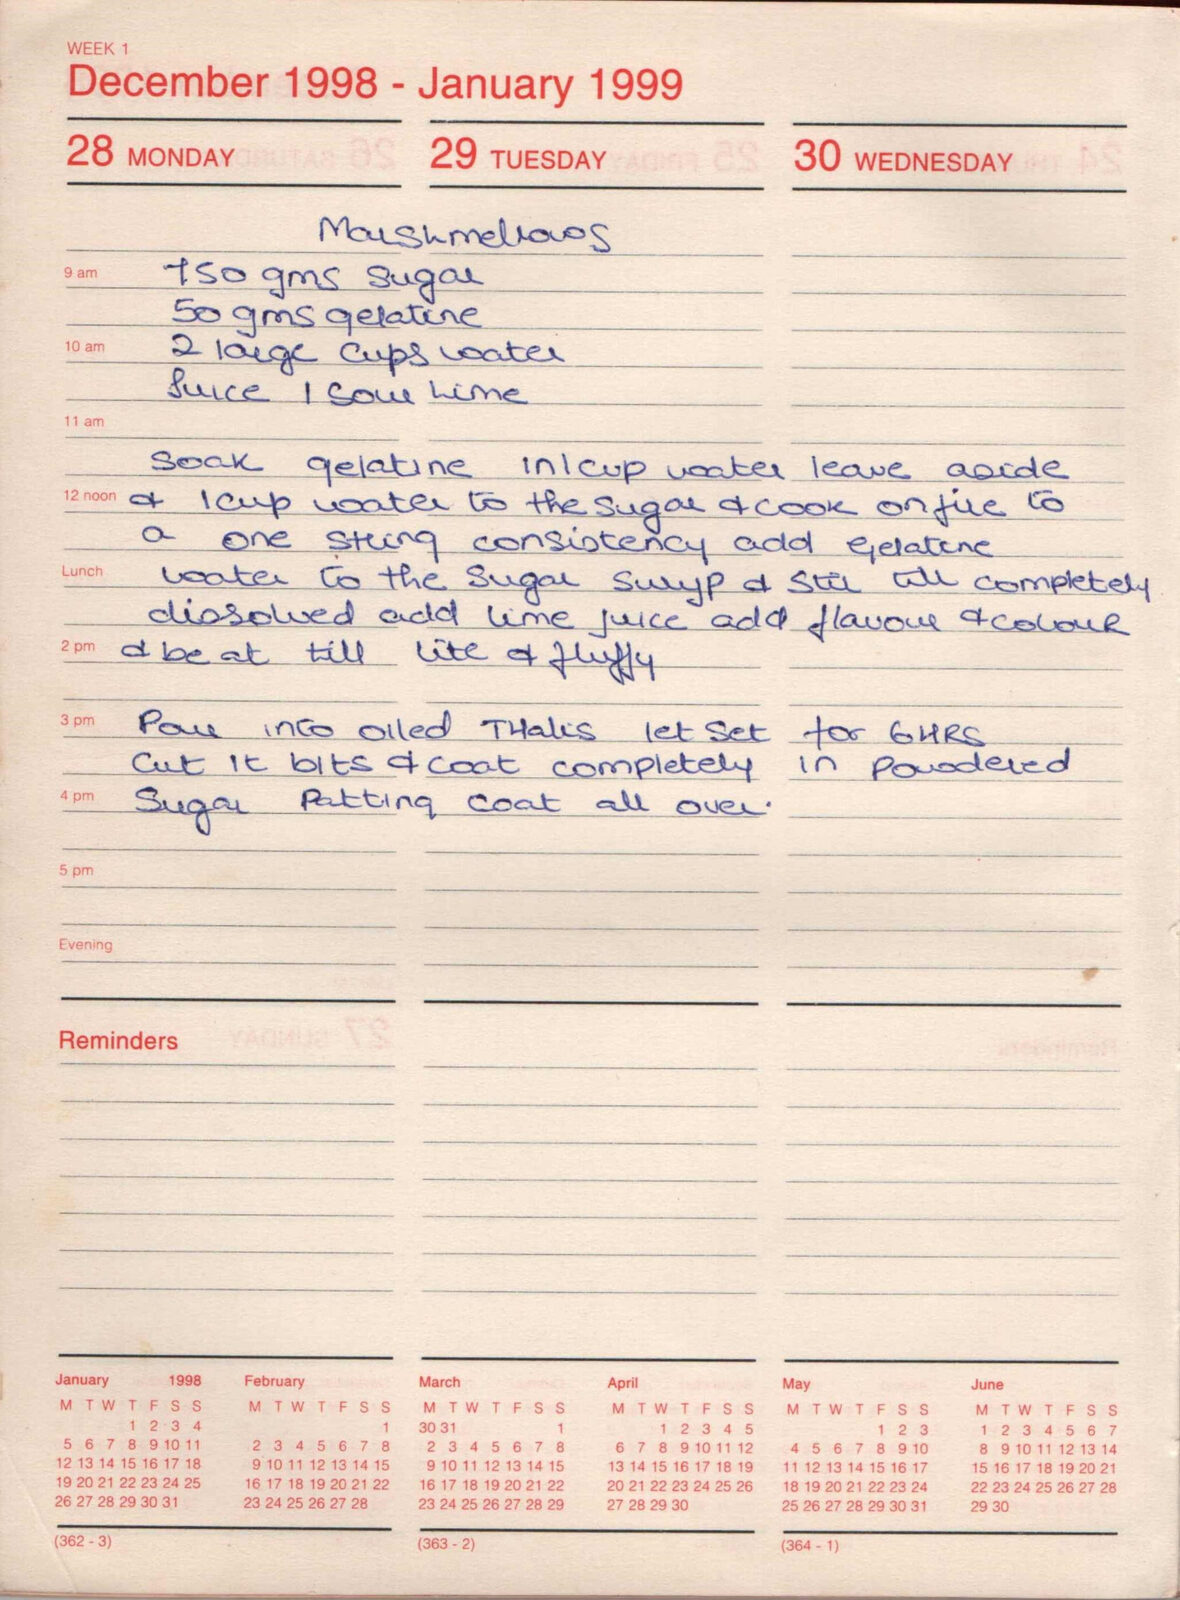 WEEK 1
December 1998 - January 1999
28 MONDAY 29 TUESDAY 30 WEDNESDAY
Marshmellows
9 am 750 gms sugar
50 gms gelatine
10 am 2 large cups water
Juice 1 Sour Lime
11 am
Soak gelatine in 1 cup water leave aside
12 noon & 1 cup water to the sugar & cook on fire to
a one string consistency add gelatine
Lunch water to the sugar suryp & stir till completely
dissolved add lime juice add flavour & colour
2 pm & beat till lite & fluffy
3 pm Pour into oiled THalis let set for 6 HRS
Cut it bits & coat completely in powdered
4 pm Sugar Patting coat all over.
5 pm
Evening
Reminders
January 1998 February March April May June
M T W T F S S M T W T F S S M T W T F S S M T W T F S S M T W T F S S M T W T F S S
1 2 3 4 1 30 31 1 1 2 3 4 5 1 2 3 1 2 3 4 5 6 7
5 6 7 8 9 10 11 2 3 4 5 6 7 8 2 3 4 5 6 7 8 6 7 8 9 10 11 12 4 5 6 7 8 9 10 8 9 10 11 12 13 14
12 13 14 15 16 17 18 9 10 11 12 13 14 15 9 10 11 12 13 14 15 13 14 15 16 17 18 19 11 12 13 14 15 16 17 15 16 17 18 19 20 21
19 20 21 22 23 24 25 16 17 18 19 20 21 22 16 17 18 19 20 21 22 20 21 22 23 24 25 26 18 19 20 21 22 23 24 22 23 24 25 26 27 28
26 27 28 29 30 31 23 24 25 26 27 28 23 24 25 26 27 28 29 27 28 29 30 25 26 27 28 29 30 31 29 30
(362 - 3) (363 - 2) (364 - 1)